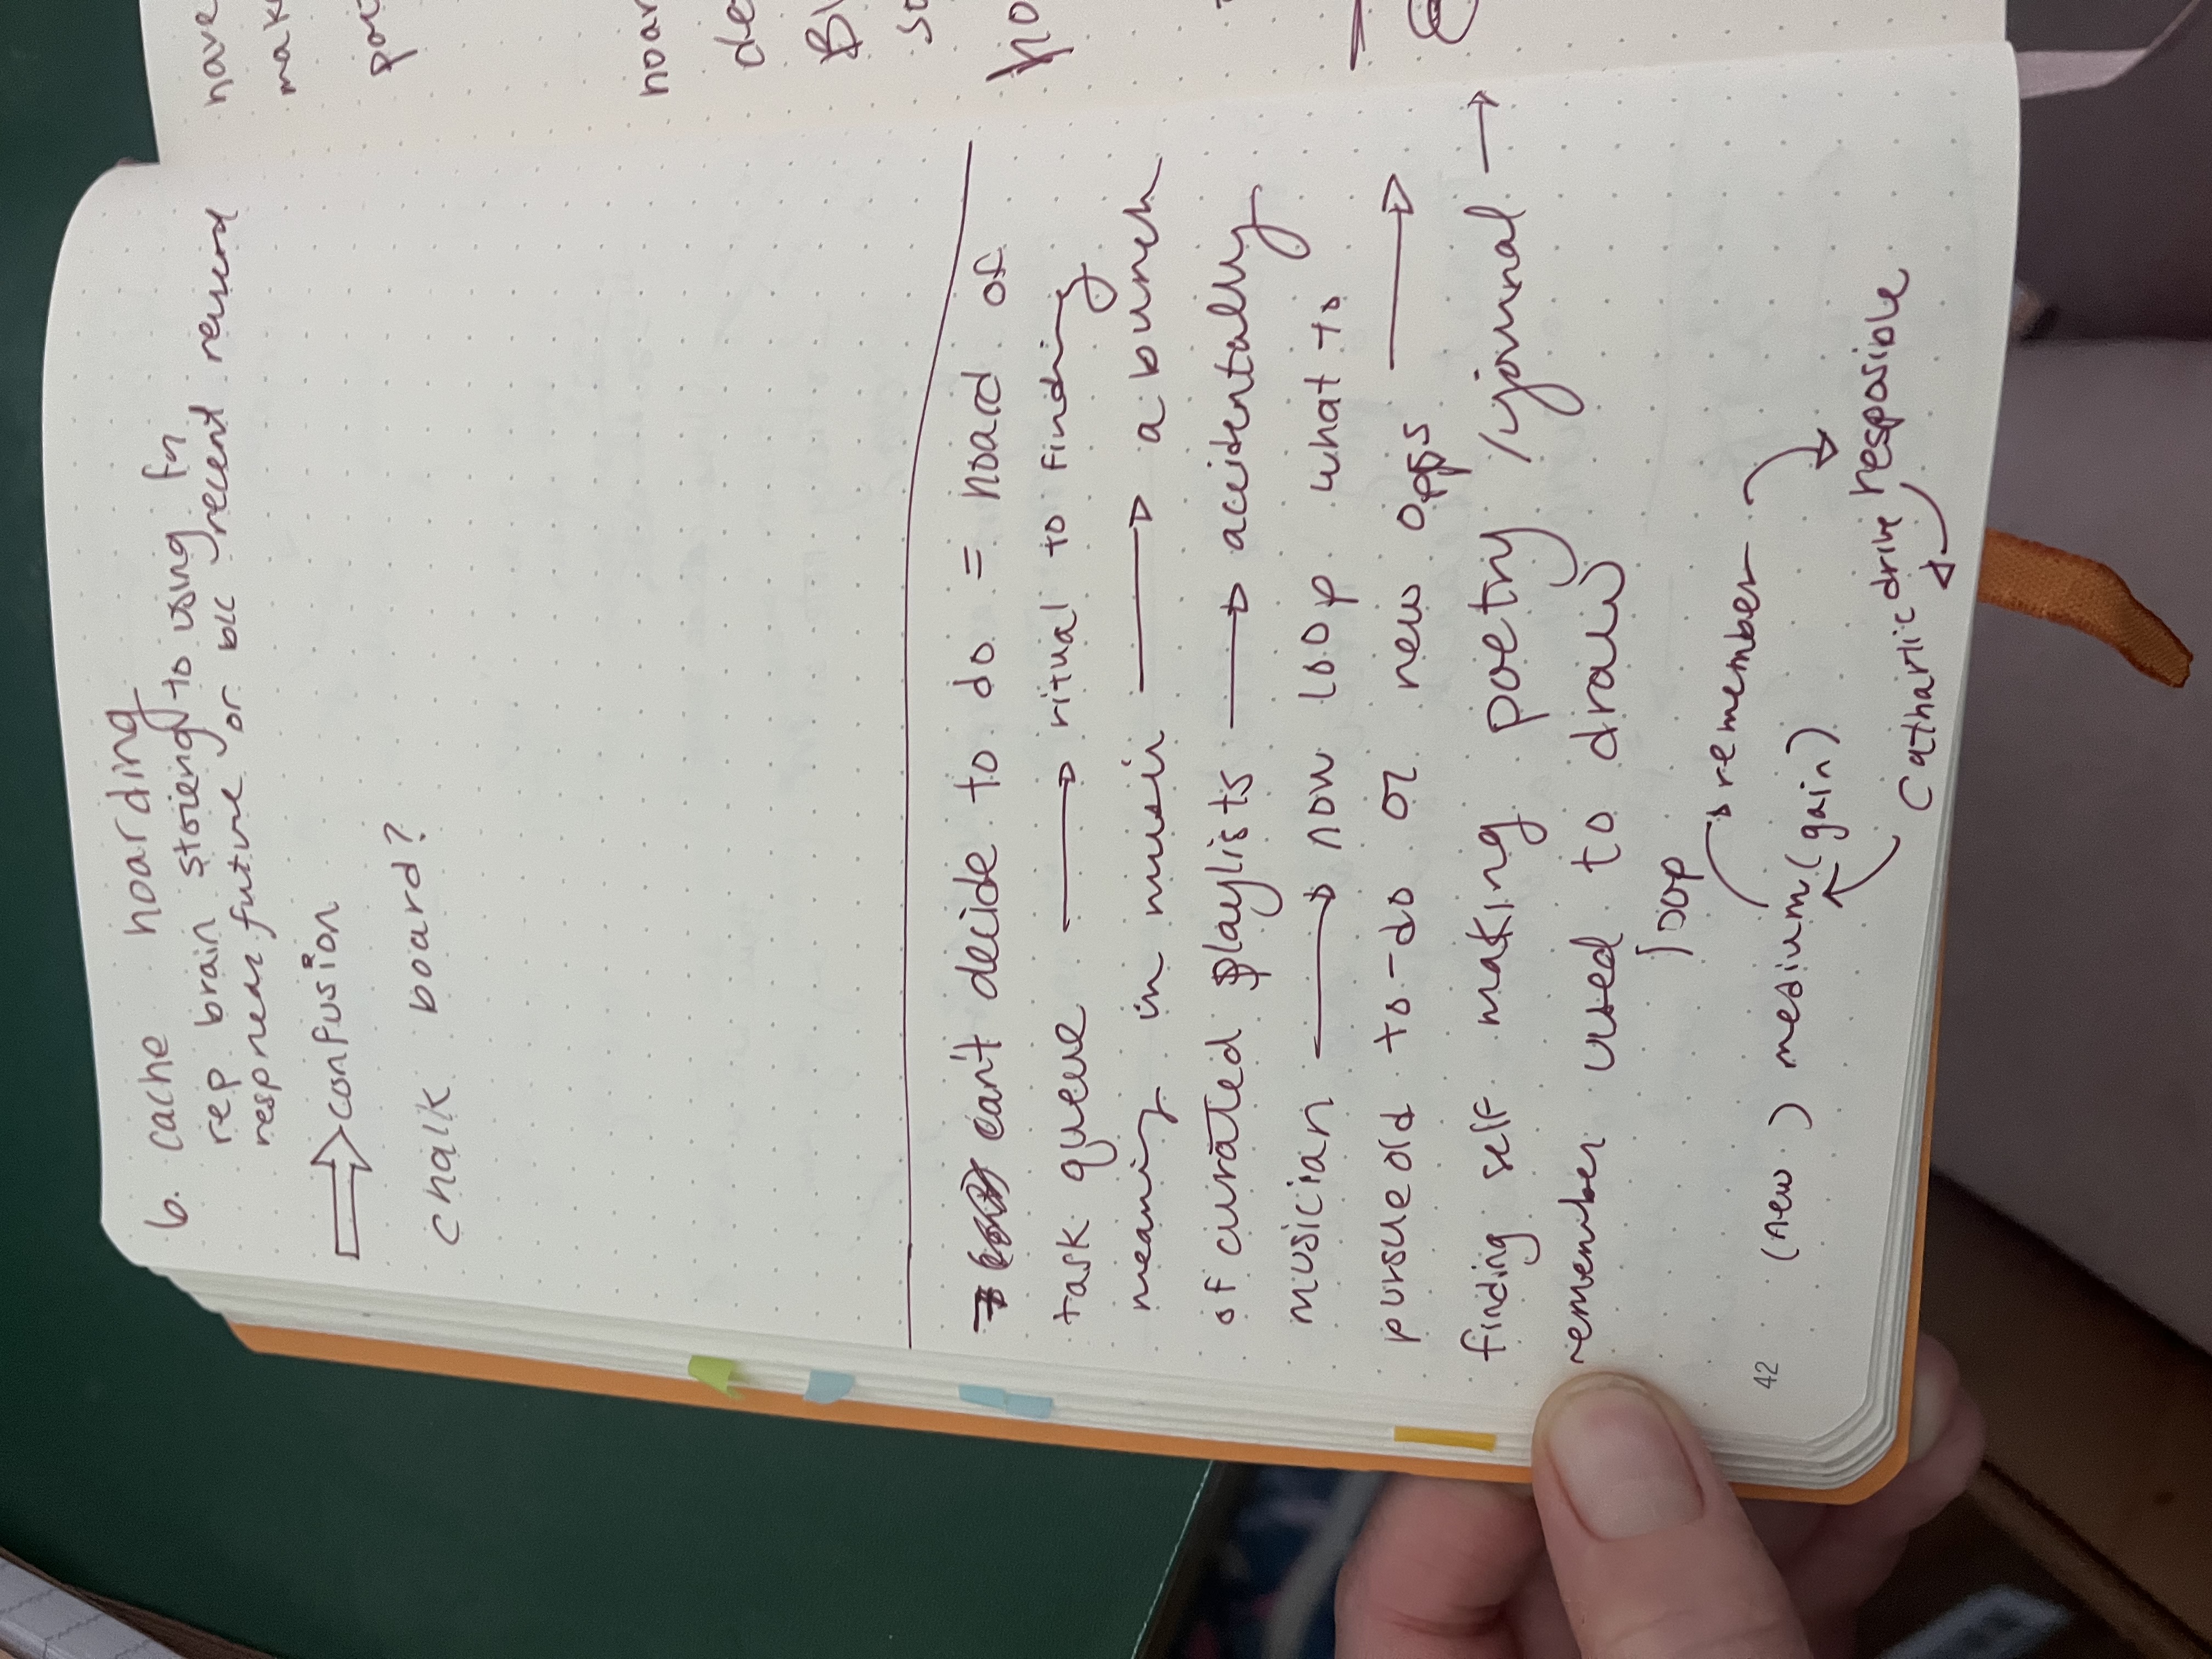 6. cache hoarding
rep brain stoieng to using for
resp near future or b/c recent
→ confusion
chalk board?
can't decide to do = hoard of
task queue → ritual to finding
meaning in music → a bunch
of curated playlists → accidentally
musician → now loop what to
pursue old to-do or new opps →
finding self making poetry / journal →
remember used to draw
loop
remember
42
(new ) medium (gain)
resposible
Cathartic drive
have
mak
hoar
de
Bl
so
ho